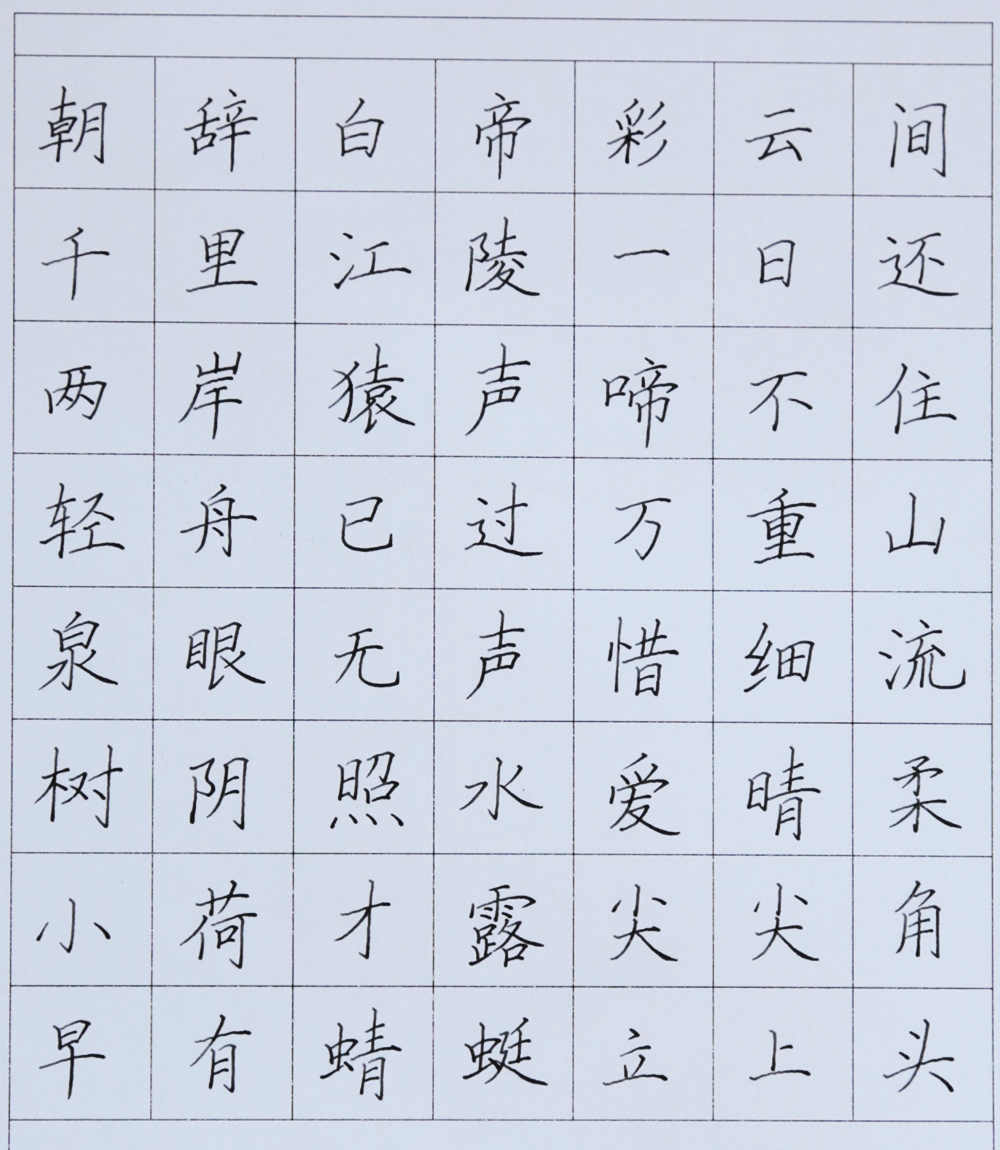 朝辞白帝彩云间
千里江陵一日还
两岸猿声啼不住
轻舟已过万重山
泉眼无声惜细流
树阴照水爱晴柔
小荷才露尖尖角
早有蜻蜓立上头